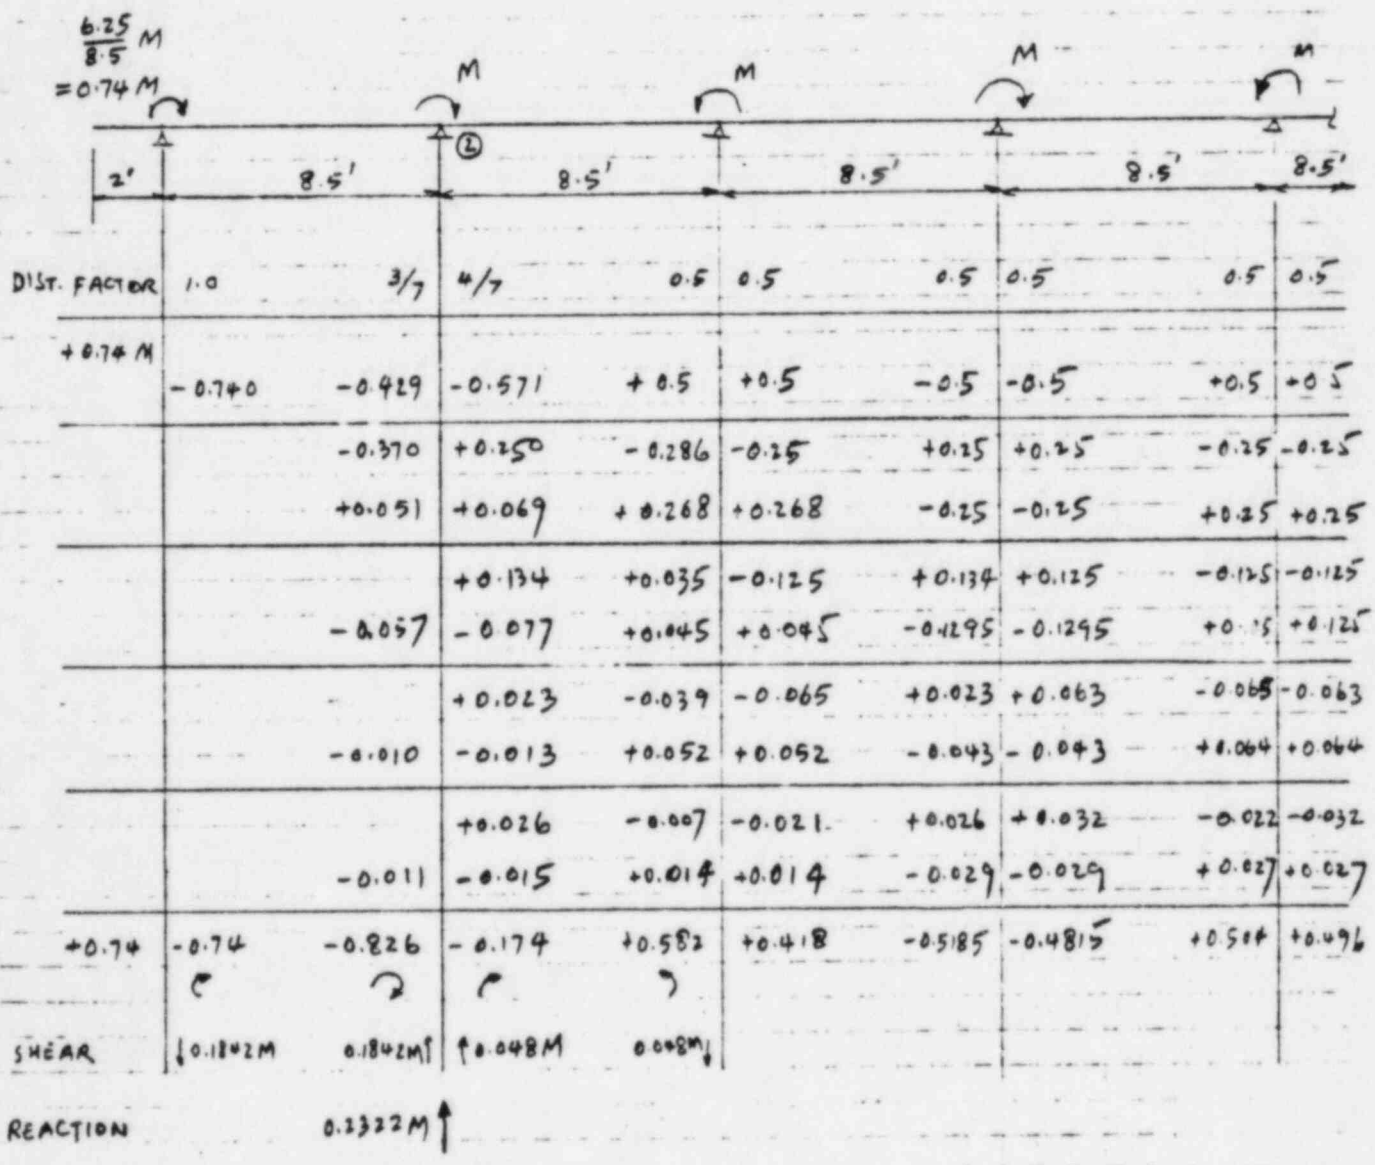 6.25
8.5 M
= 0.74 M
M M M M
②
2' 8.5' 8.5' 8.5' 8.5' 8.5'
DIST. FACTOR 1.0 3/7 4/7 0.5 0.5 0.5 0.5 0.5 0.5
+0.74 M
-0.740 -0.429 -0.571 +0.5 +0.5 -0.5 -0.5 +0.5 +0.5
-0.370 +0.250 -0.286 -0.25 +0.25 +0.25 -0.25 -0.25
+0.051 +0.069 +0.268 +0.268 -0.25 -0.25 +0.25 +0.25
+0.134 +0.035 -0.125 +0.134 +0.125 -0.125 -0.125
-0.057 -0.077 +0.045 +0.045 -0.1295 -0.1295 +0.125
+0.023 -0.039 -0.065 +0.023 +0.063 -0.065 -0.063
-0.010 -0.013 +0.052 +0.052 -0.043 -0.043 +0.064 +0.064
+0.026 -0.007 -0.021 +0.026 +0.032 -0.022 -0.032
-0.011 -0.015 +0.014 +0.014 -0.029 -0.029 +0.027 +0.027
+0.74 -0.74 -0.826 -0.174 +0.582 +0.418 -0.5185 -0.4815 +0.504 +0.496
SHEAR 0.1842M 0.1842M 0.048M 0.048M
REACTION 0.2322M